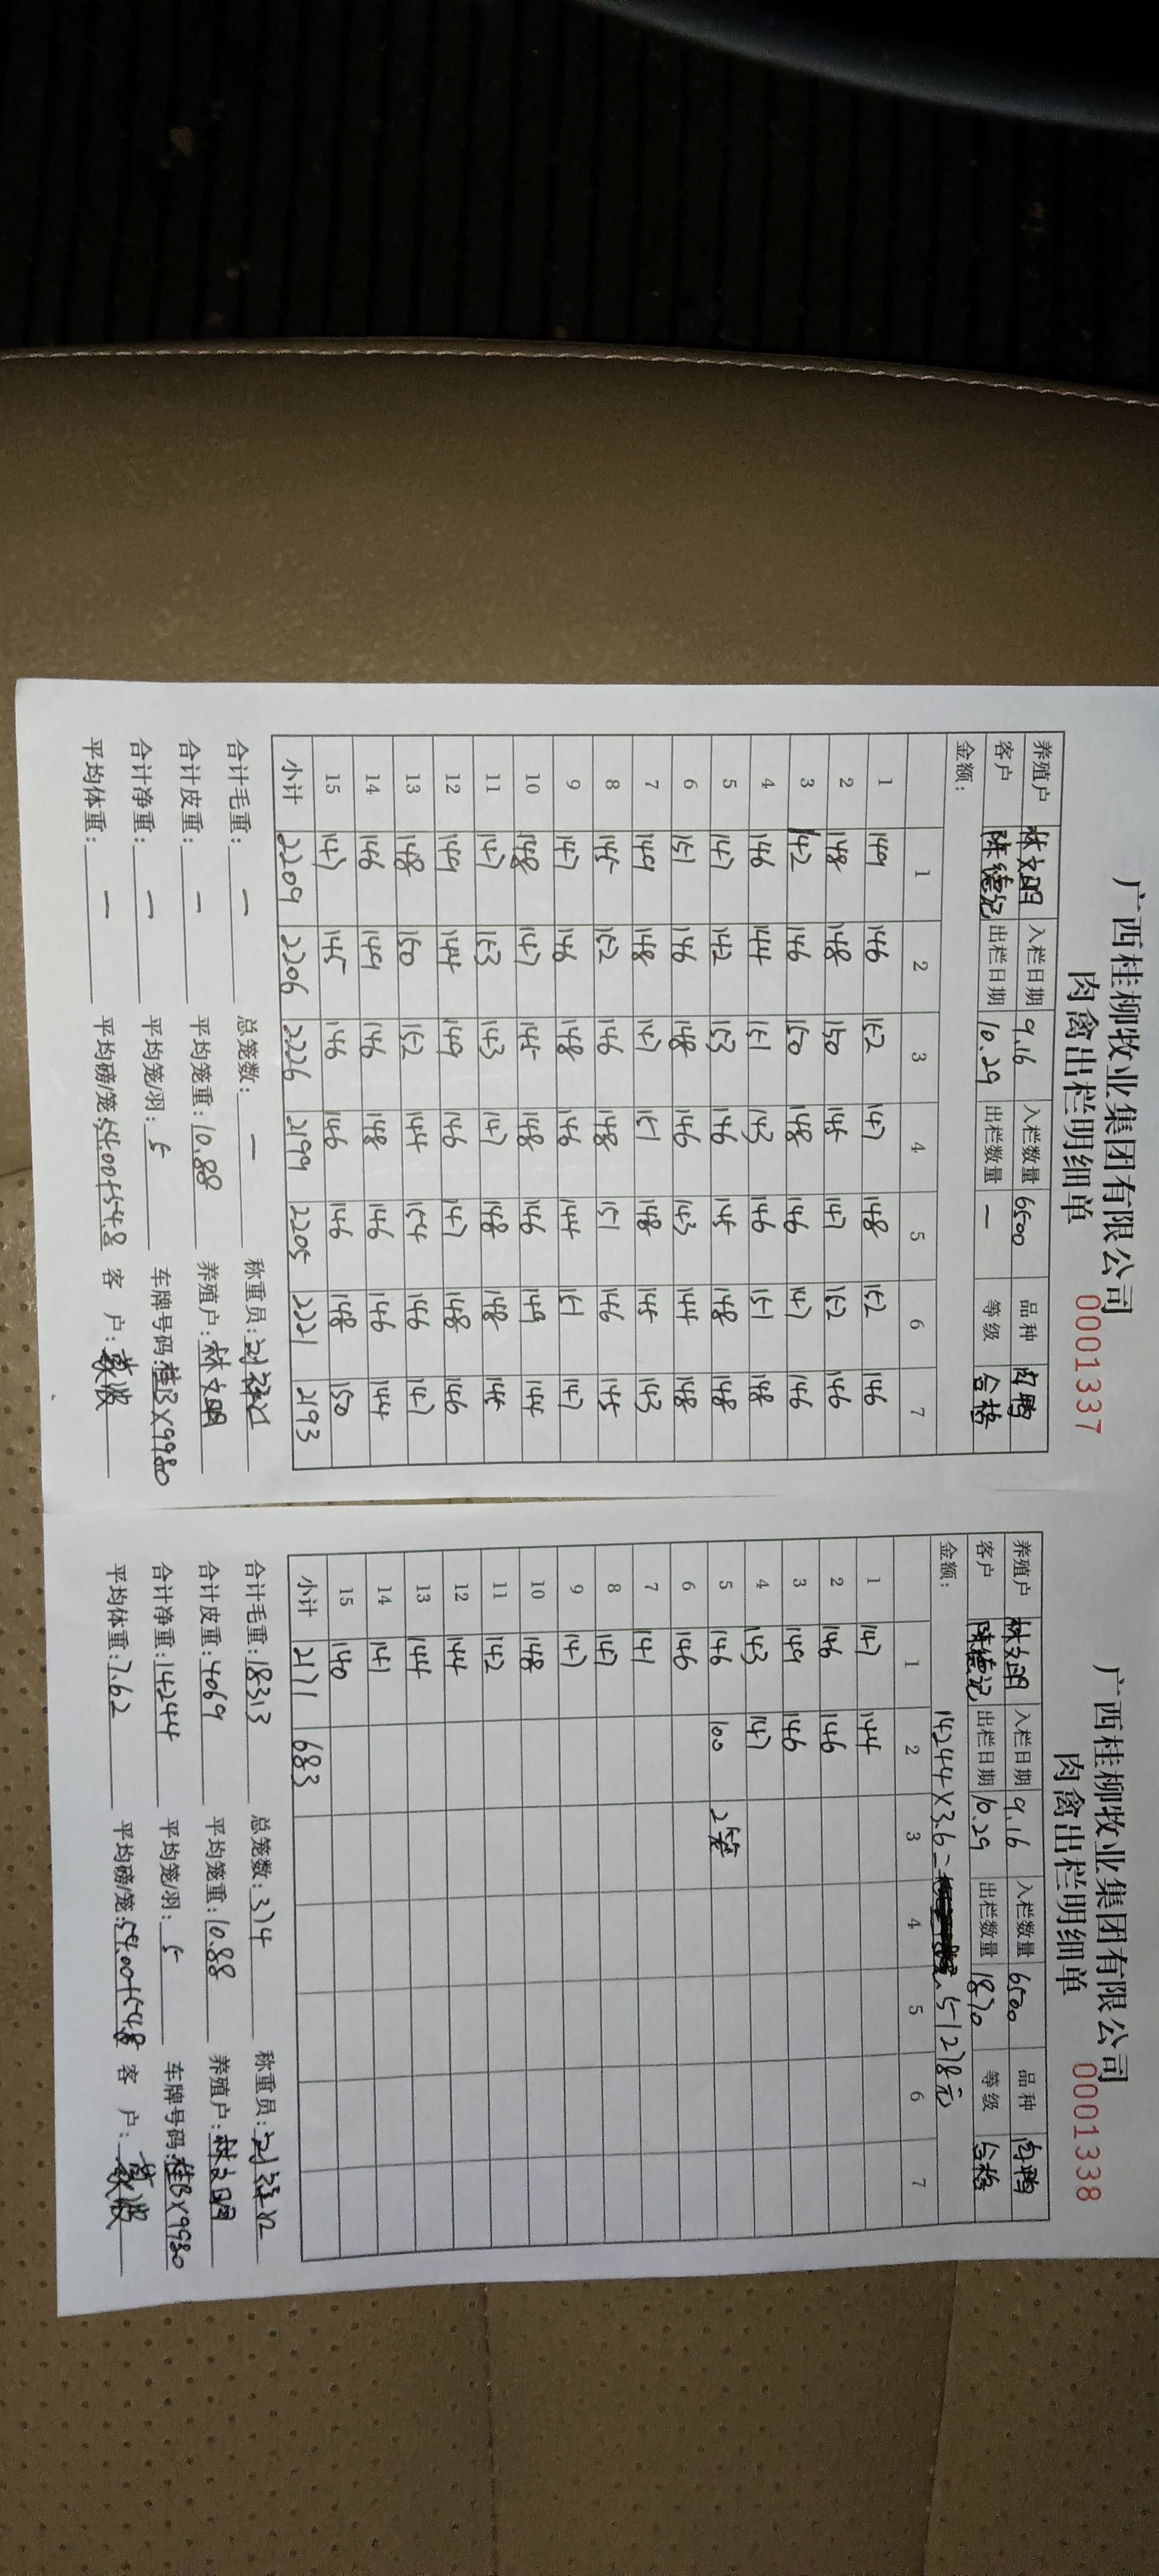 广西桂柳牧业集团有限公司
肉禽出栏明细单 0001337
养殖户 林文明 入栏日期 9.16 入栏数量 6500 品种 白鸭
客户 陈德记 出栏日期 10.29 出栏数量 — 等级 合格
金额:
1 2 3 4 5 6 7
1 149 146 152 147 148 152 146
2 148 148 150 145 147 152 146
3 142 146 150 148 146 147 146
4 146 144 151 143 146 151 148
5 147 142 153 146 145 148 148
6 151 146 148 146 153 144 148
7 149 148 147 151 148 145 143
8 145 152 146 148 151 146 144
9 147 146 148 146 144 151 147
10 148 147 145 148 146 149 144
11 147 153 143 147 148 148 145
12 149 144 149 146 147 148 146
13 148 150 152 144 154 146 147
14 146 149 146 148 146 146 144
15 147 145 146 146 146 148 150
小计 2209 2206 2226 2199 2205 2221 2193
合计毛重: — 总笼数: — 称重员:
合计皮重: — 平均笼重: 10.88 养殖户: 林文明
合计净重: — 平均笼/羽: 5 车牌号码: 桂BX9980
平均体重: — 平均磅/笼: 54.00+54.8 客 户:
广西桂柳牧业集团有限公司
肉禽出栏明细单 0001338
养殖户 林文明 入栏日期 9.16 入栏数量 6500 品种 白鸭
客户 陈德记 出栏日期 10.29 出栏数量 1870 等级 合格
金额: 14244×3.6= 51278元
1 2 3 4 5 6 7
1 147 144
2 146 146
3 149 146
4 143 147
5 146 100 2笼
6 146
7 141
8 147
9 147
10 148
11 142
12 144
13 144
14 141
15 140
小计 2171 683
合计毛重: 18313 总笼数: 374 称重员:
合计皮重: 4069 平均笼重: 10.88 养殖户: 林文明
合计净重: 14244 平均笼/羽: 5 车牌号码: 桂BX9980
平均体重: 7.62 平均磅/笼: 54.00+54.8 客 户: